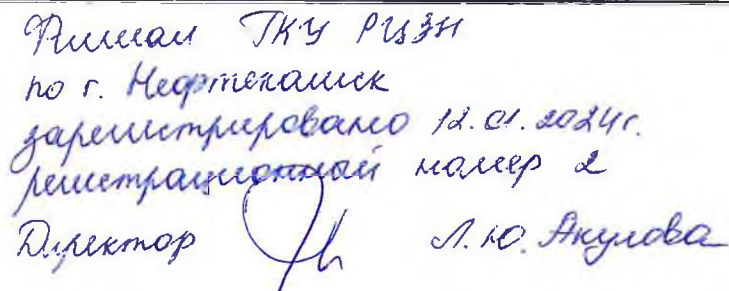 Филиал ГКУ РЦЗН
по г. Нефтекамск
зарегистрировано 12.01.2024г.
регистрационный номер 2
Директор Л.Ю. Акулова